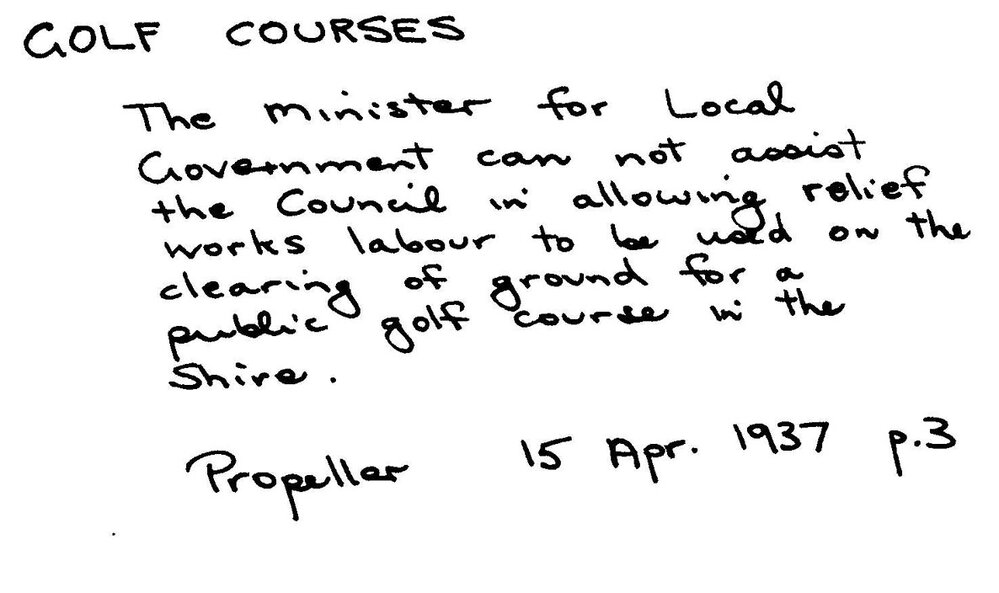 GOLF COURSES
The Minister for Local
Government can not assist
the Council in allowing relief
works labour to be used on the
clearing of ground for a
public golf course in the
Shire.
Propeller 15 Apr. 1937 p.3